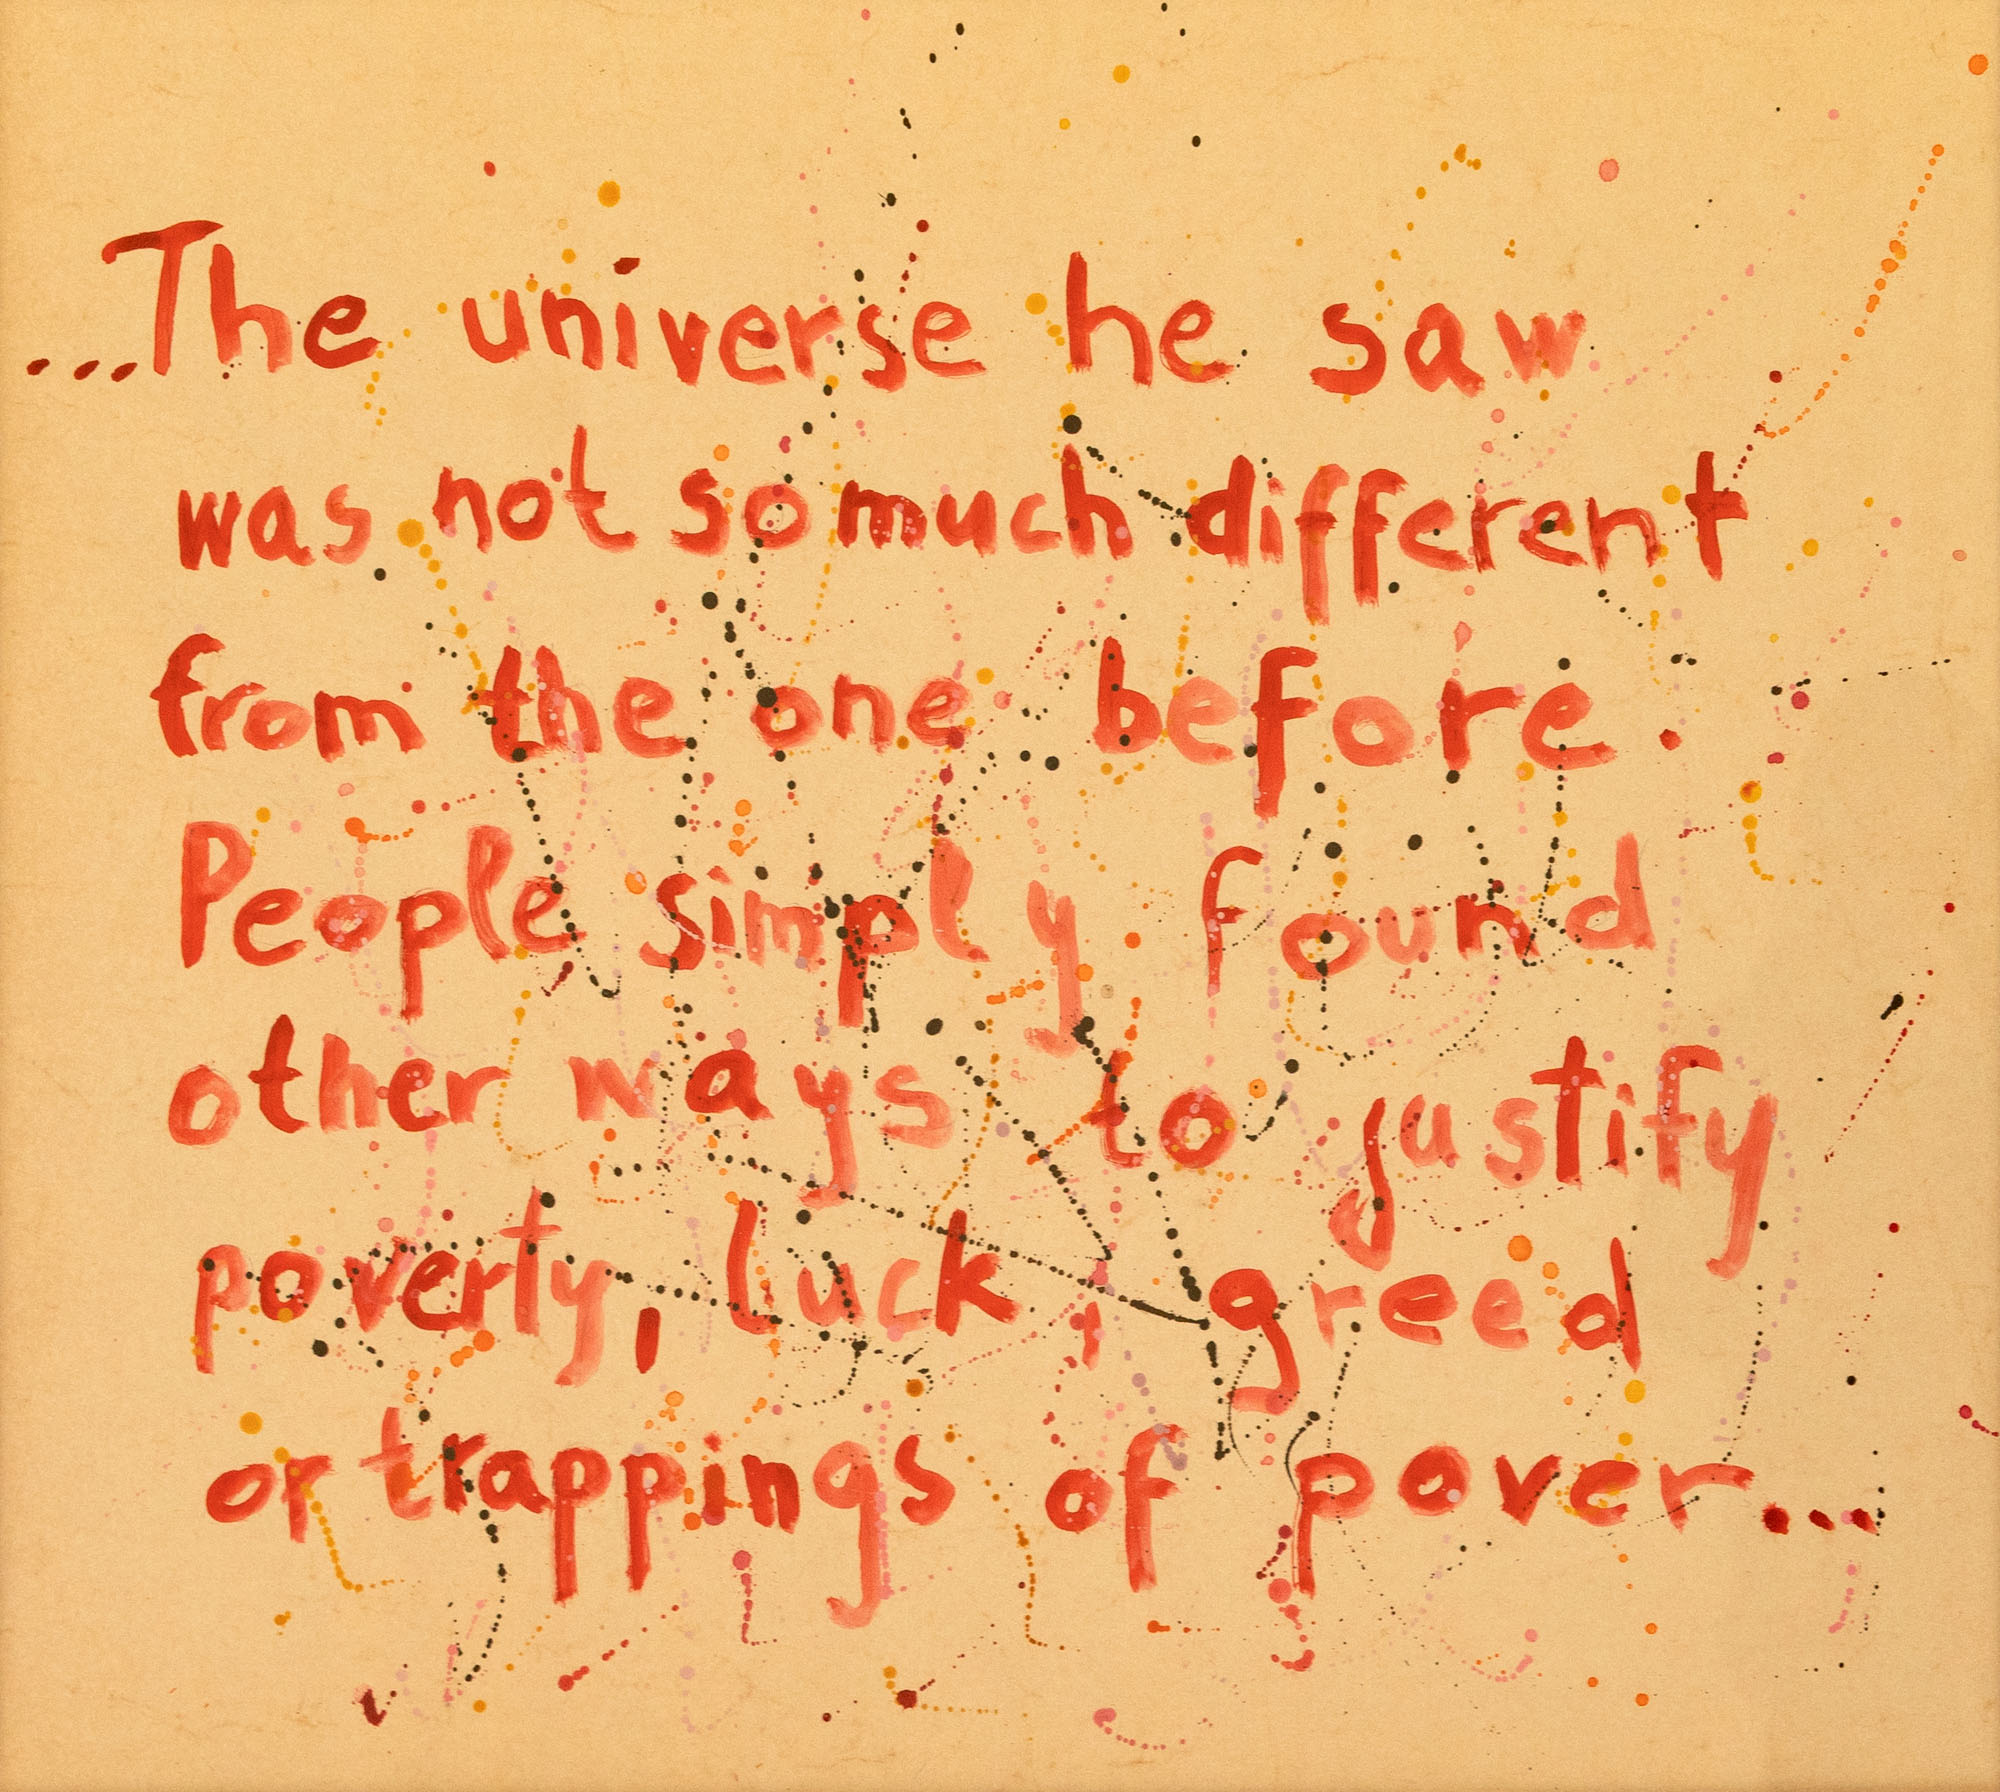 ...The universe he saw
was not so much different
from the one before.
People simply found
other ways to justify
poverty, luck, greed
or trappings of pover...